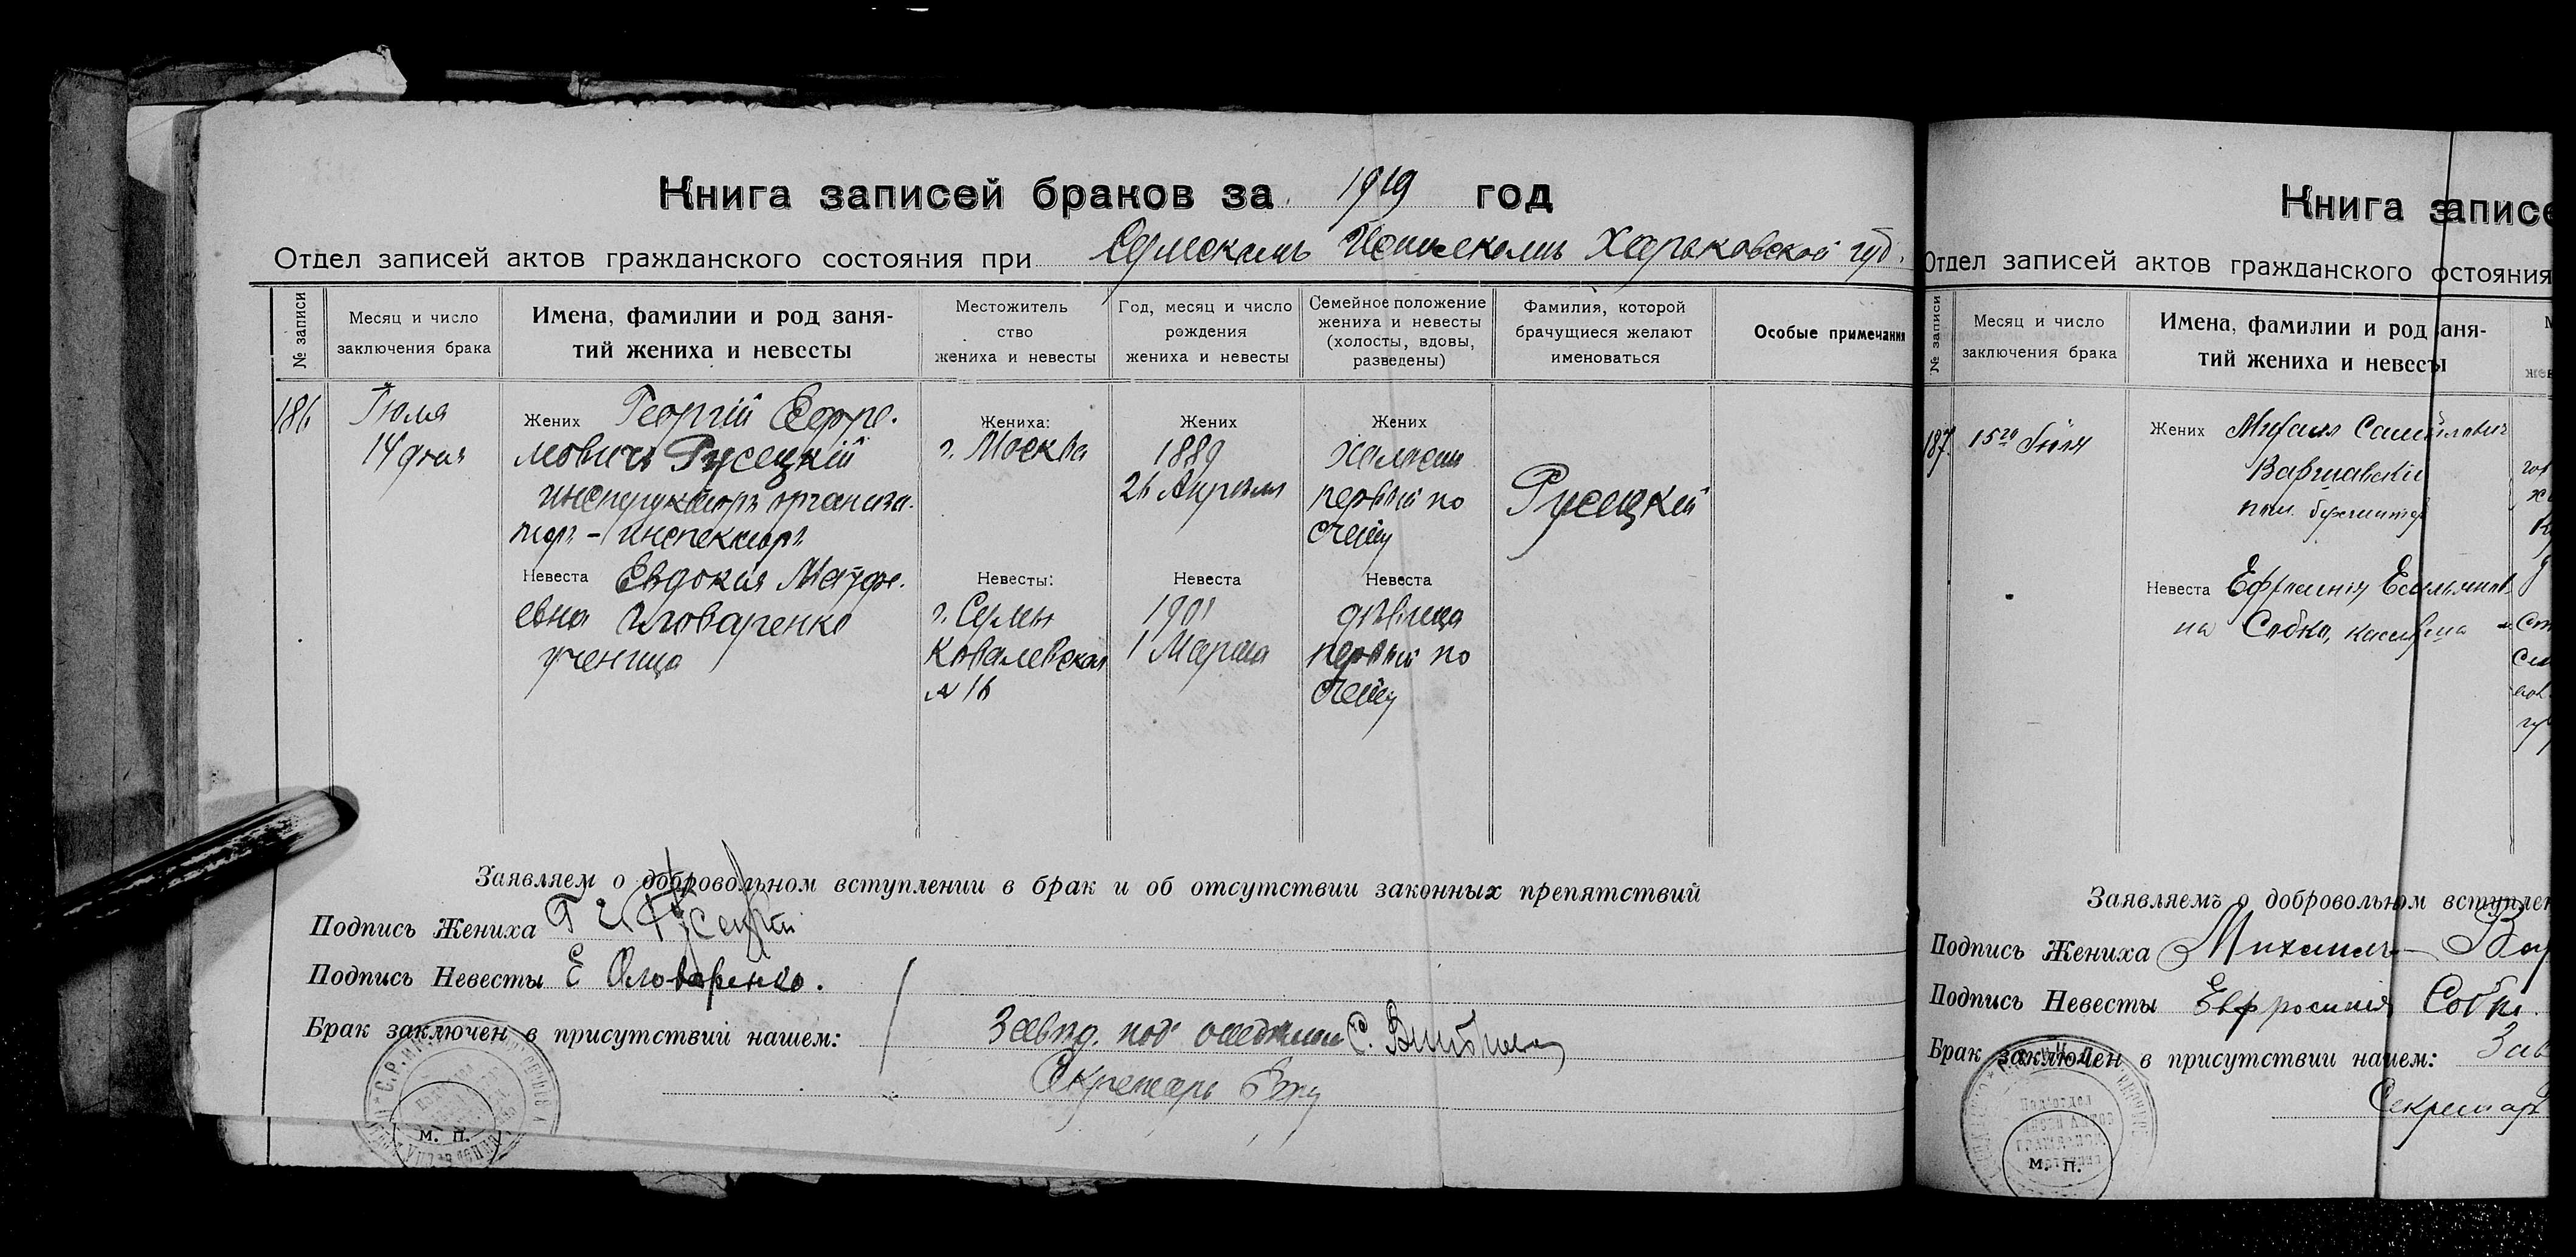 Книга записей браков за 1919 год
Отдел записей актов гражданского состояния при Сумскомъ Исполкомъ Харьковской губ.
№ записи
Месяц и число заключения брака
Имена, фамилии и род заня-
тий жениха и невесты
Местожитель
ство
жениха и невесты
Год, месяц и число
рождения
жениха и невесты
Семейное положение
жениха и невесты
(холосты, вдовы,
разведены)
Фамилия, которой
брачущиеся желают
именоваться
Особые примечания
186
Іюля
14 дня
Жених Георгій Ефре-
мовичъ Русецкій
инструкторъ организа-
торъ - инспекторъ
Невеста Евдокия Матфе-
евна Оловаренко
ученица
Жениха:
г. Москва
Невесты:
г. Сумы
Ковалевская
№ 16
Жених
1889
26 Апреля
Невеста
1901
1 Марта
Жених
холостъ
первый по
счету
Невеста
дѣвица
первый по
счету
Русецкій
Заявляем о добровольном вступлении в брак и об отсутствии законных препятствий
Подпись Жениха Г Е Русецкій
Подпись Невесты Е Оловаренко.
Брак заключен в присутствий нашем: Завѣд. под отделом С.
Секретарь
м. п.
Книга записе
Отдел записей актов гражданского состояния
№ записи
Месяц и число
заключения брака
Имена, фамилии и род заня-
тий жениха и невесты
187.
15го Июля
Жених Михаил Самойлович
Варшавский
Невеста Ефросиния Емельянов
на Собко,
Заявляемъ о добровольном вступлен
Подпись Жениха Михаилъ Вар
Подпись Невесты Евфросиния Собко
Брак заключен в присутствий нашем: Зав
Секретарь
Под'отдел
м. п.